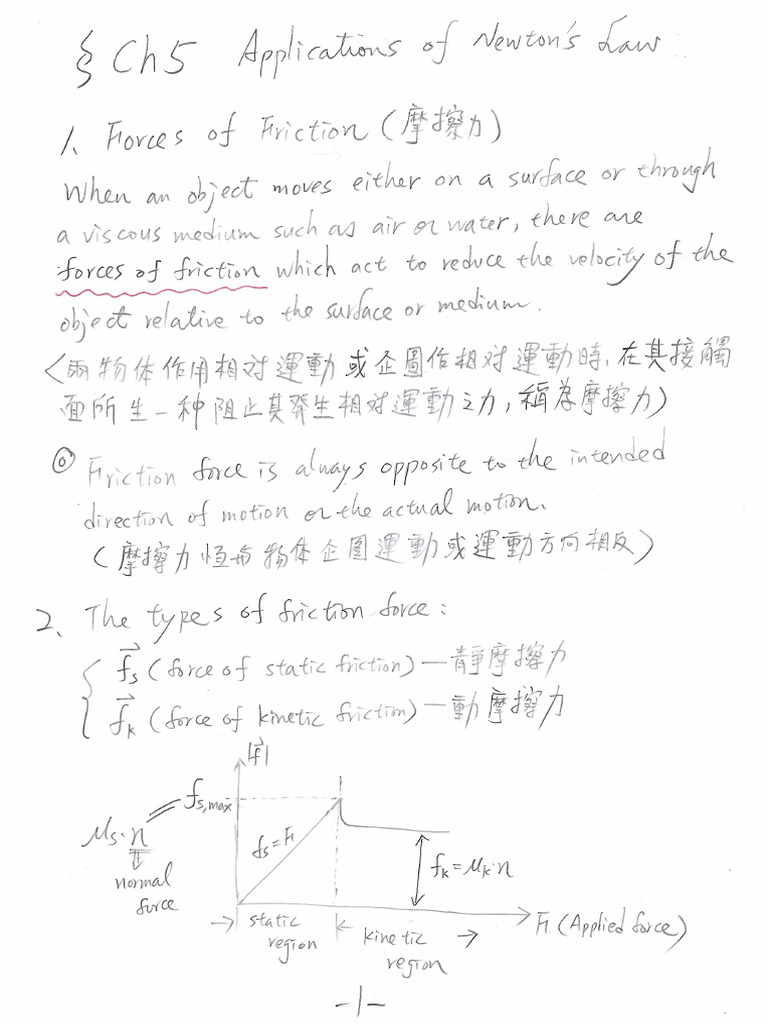 § Ch5 Applications of Newton's Law
1、Forces of Friction (摩擦力)
When an object moves either on a surface or through
a viscous medium such as air or water, there are
forces of friction which act to reduce the velocity of the
object relative to the surface or medium.
(兩物体作用相对運動或企圖作相对運動時，在其接觸
面所生一种阻止其發生相对運動之力，稱為摩擦力)
◎ Friction force is always opposite to the intended
direction of motion or the actual motion.
(摩擦力恒与物体企圖運動或運動方向相反)
2、The types of friction force:
f⃗s (force of static friction) — 靜摩擦力
f⃗k (force of kinetic friction) — 動摩擦力
|f⃗|
fs,max
μs·n
normal
force
fs=F
fk=μk·n
static
region
kinetic
region
F (Applied force)
-1-